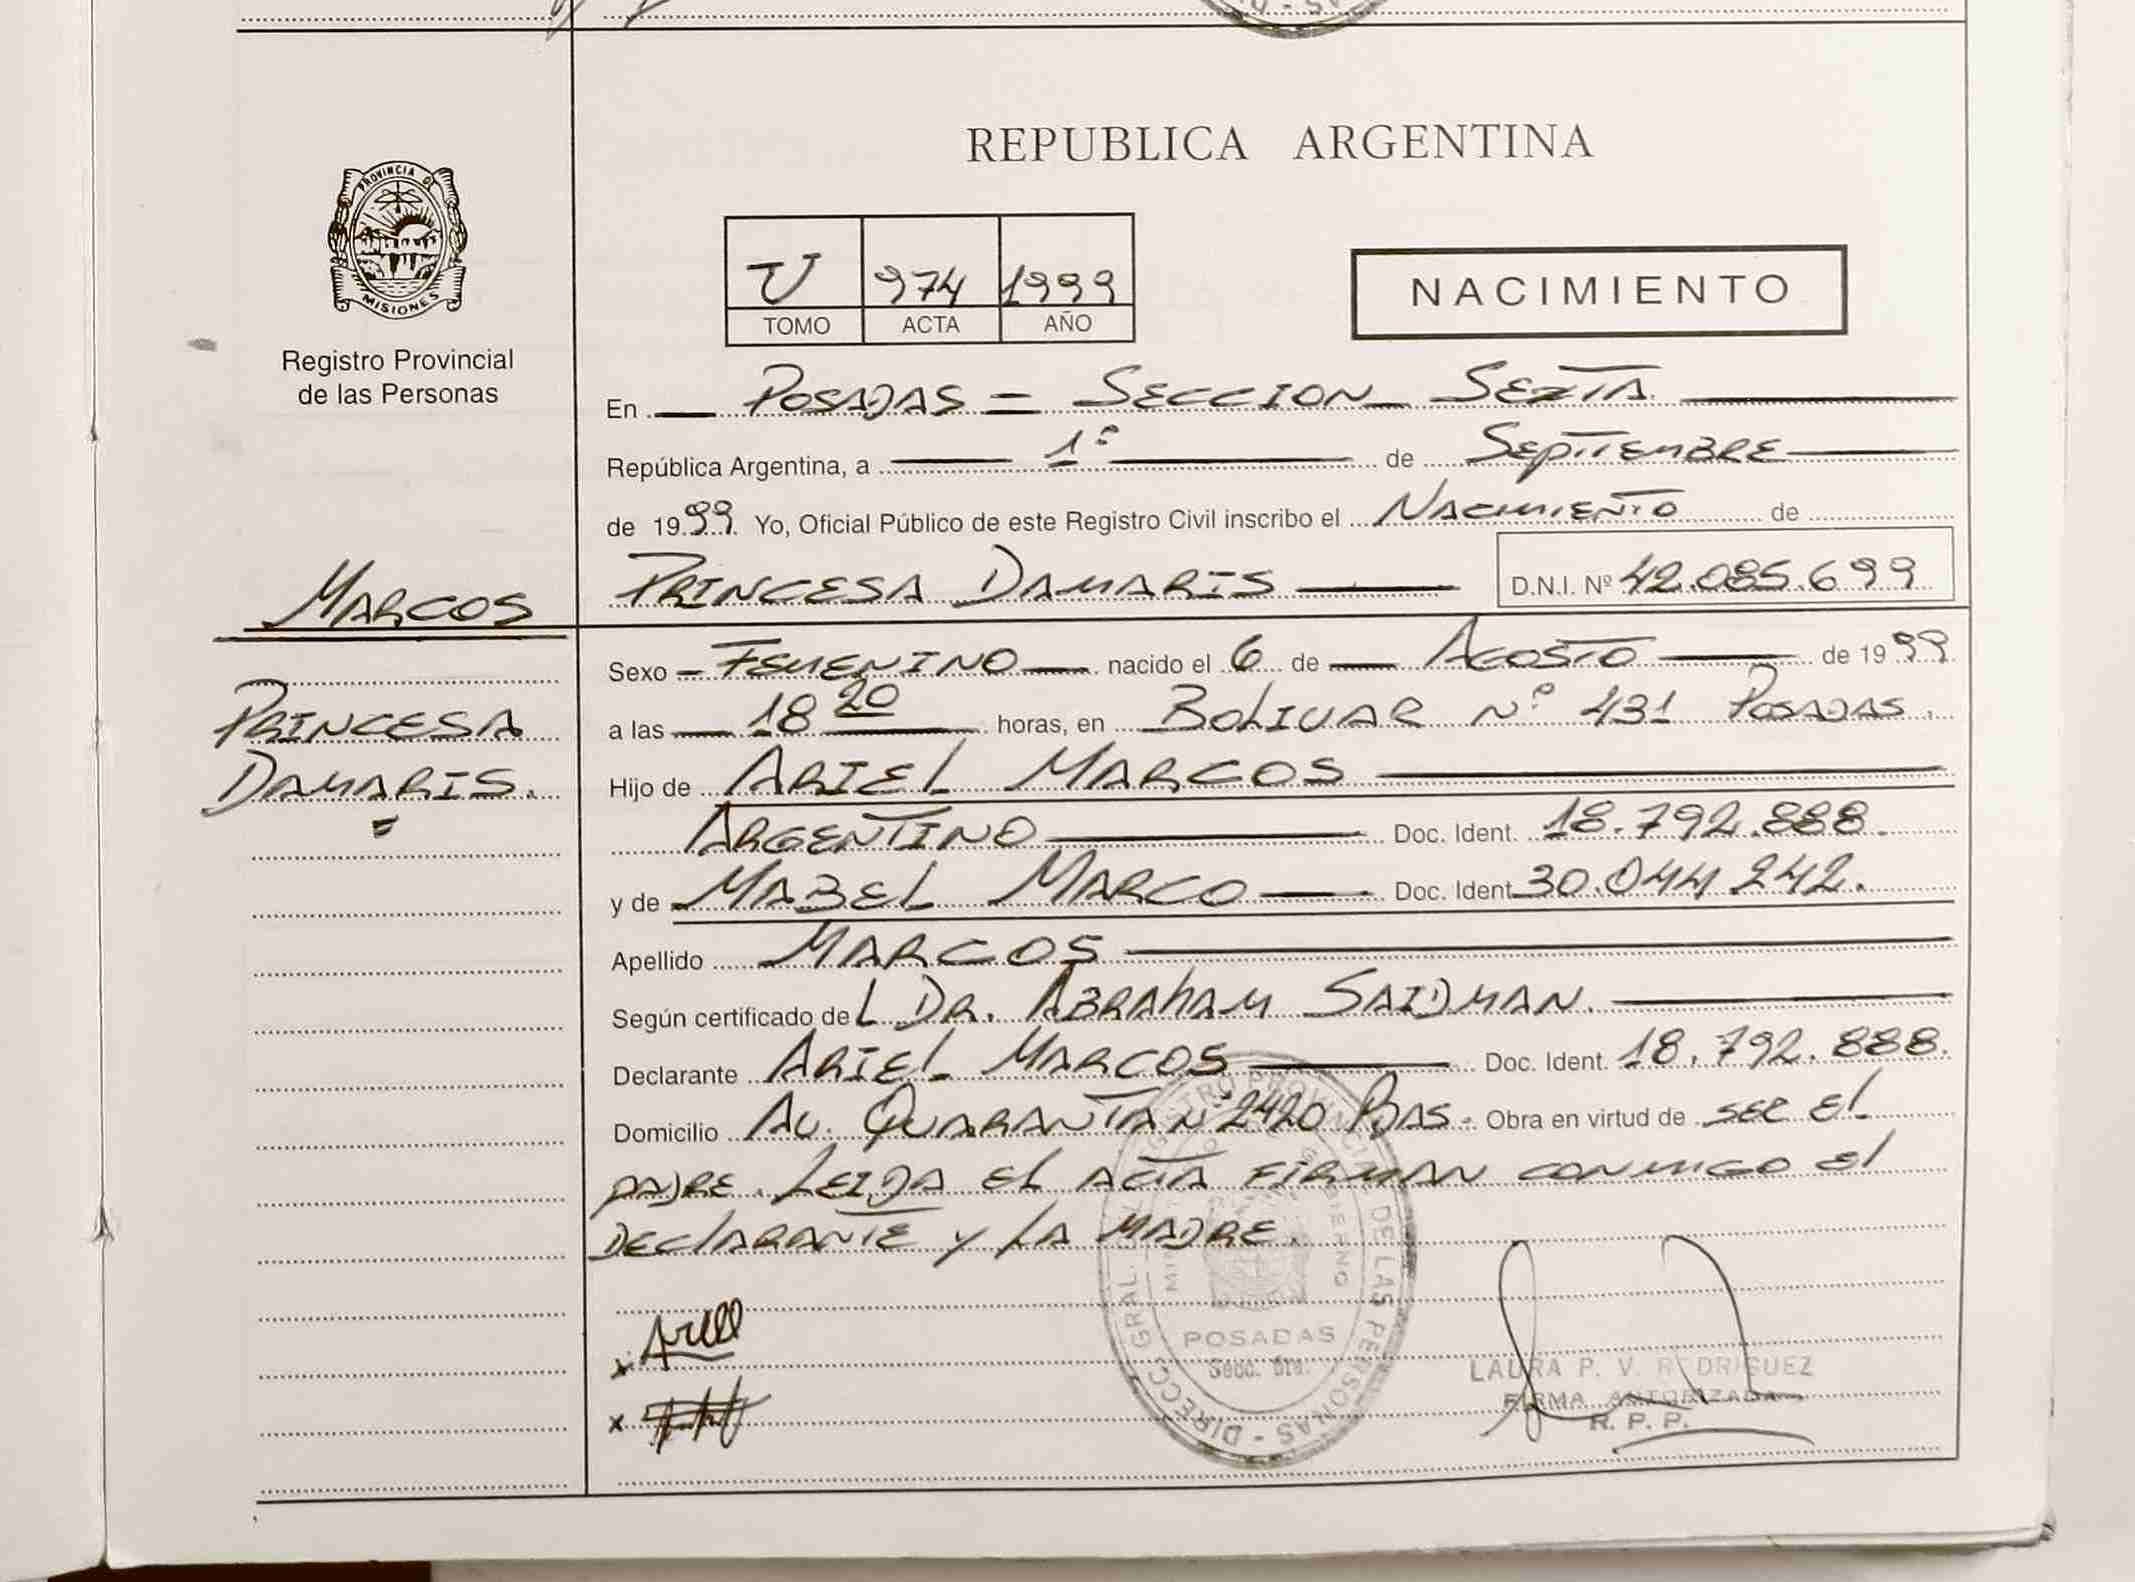 PROVINCIA DE
MISIONES
Registro Provincial
de las Personas
MARCOS
PRINCESA
DAMARIS.
REPUBLICA ARGENTINA
U 974 1999
TOMO ACTA AÑO
NACIMIENTO
En POSADAS = SECCION SEXTA
República Argentina, a 1º de SEPTIEMBRE
de 1999 Yo, Oficial Público de este Registro Civil inscribo el NACIMIENTO de
PRINCESA DAMARIS D.N.I. Nº 42.085.699
Sexo FEMENINO nacido el 6 de AGOSTO de 1999
a las 18 20 horas, en BOLIVAR Nº 431 POSADAS.
Hijo de ARIEL MARCOS
ARGENTINO Doc. Ident. 18.792.888.
y de MABEL MARCO Doc. Ident. 30.044.242.
Apellido MARCOS
Según certificado del DR. ABRAHAM SAIDMAN.
Declarante ARIEL MARCOS Doc. Ident. 18.792.888.
Domicilio AV. QUARANTA Nº 2420 PDAS. Obra en virtud de SER EL
PADRE. LEIDA EL ACTA FIRMAN CONMIGO EL
DECLARANTE Y LA MADRE.
x Ariel
x
DIRECC. GRAL. REGISTRO PROVINCIAL DE LAS PERSONAS
POSADAS
Secc. 6ta.
LAURA P. V. RODRIGUEZ
FIRMA AUTORIZADA
R. P. P.